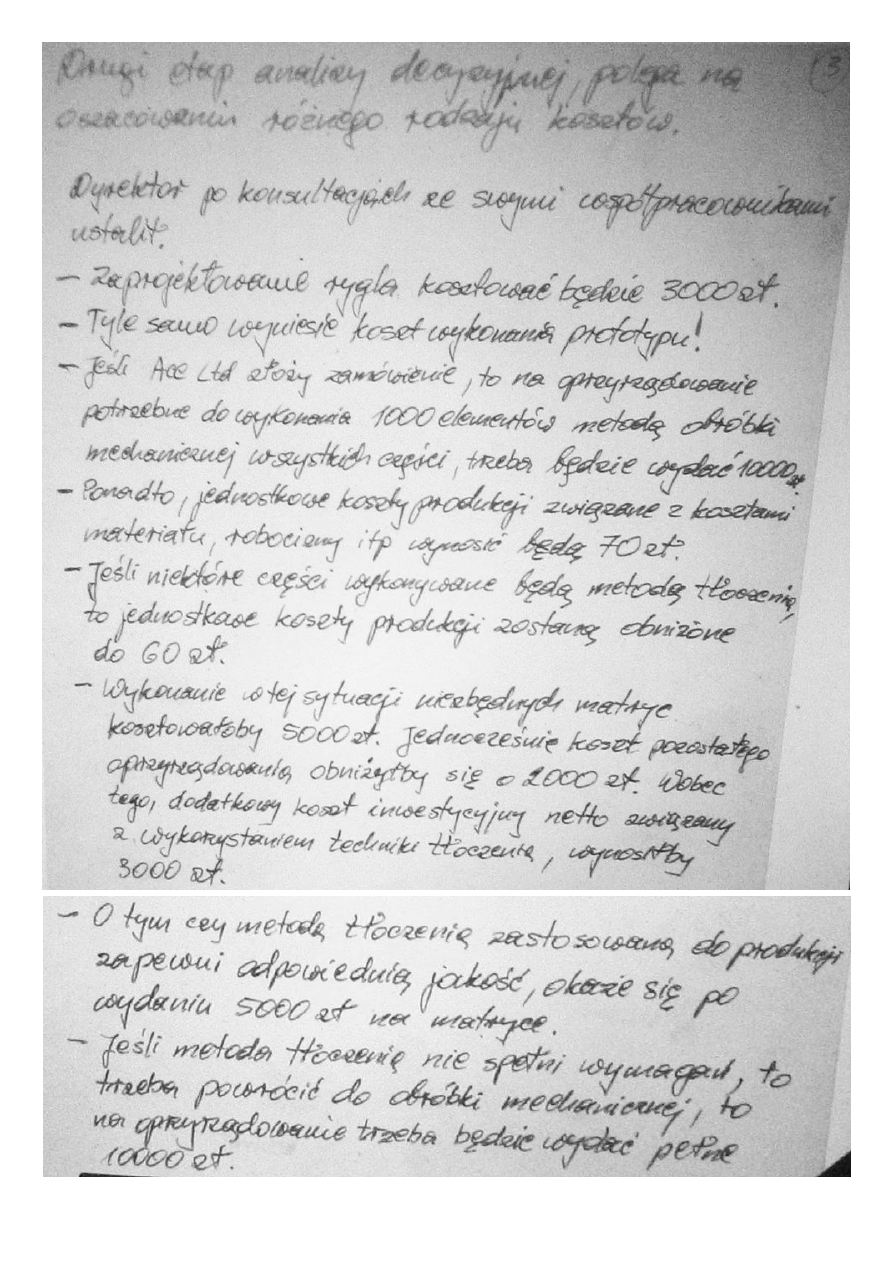 Drugi etap analizy decyzyjnej, polega na (3)
oszacowaniu różnego rodzaju kosztów.
Dyrektor po konsultacjach ze swymi współpracownikami
ustalił:
- Zaprojektowanie rygla kosztować będzie 3000 zł.
- Tyle samo wyniesie koszt wykonania prototypu!
- Jeśli Ace Ltd złoży zamówienie, to na oprzyrządowanie
potrzebne do wykonania 1000 elementów metodą obróbki
mechanicznej wszystkich części, trzeba będzie wydać 10000 zł.
- Ponadto, jednostkowe koszty produkcji związane z kosztami
materiału, robocizny itp wynosić będą 70 zł.
- Jeśli niektóre części wykonywane będą metodą tłoczenia,
to jednostkowe koszty produkcji zostaną obniżone
do 60 zł.
- Wykonanie w tej sytuacji niezbędnych matryc
kosztowałoby 5000 zł. Jednocześnie koszt pozostałego
oprzyrządowania obniżyłby się o 2000 zł. Wobec
tego, dodatkowy koszt inwestycyjny netto związany
z wykorzystaniem techniki tłoczenia, wynosiłby
3000 zł.
- O tym czy metoda tłoczenia zastosowana do produkcji
zapewni odpowiednią jakość, okaże się po
wydaniu 5000 zł na matryce.
- Jeśli metoda tłoczenia nie spełni wymagań, to
trzeba powrócić do obróbki mechanicznej, to
na oprzyrządowanie trzeba będzie wydać pełne
10000 zł.